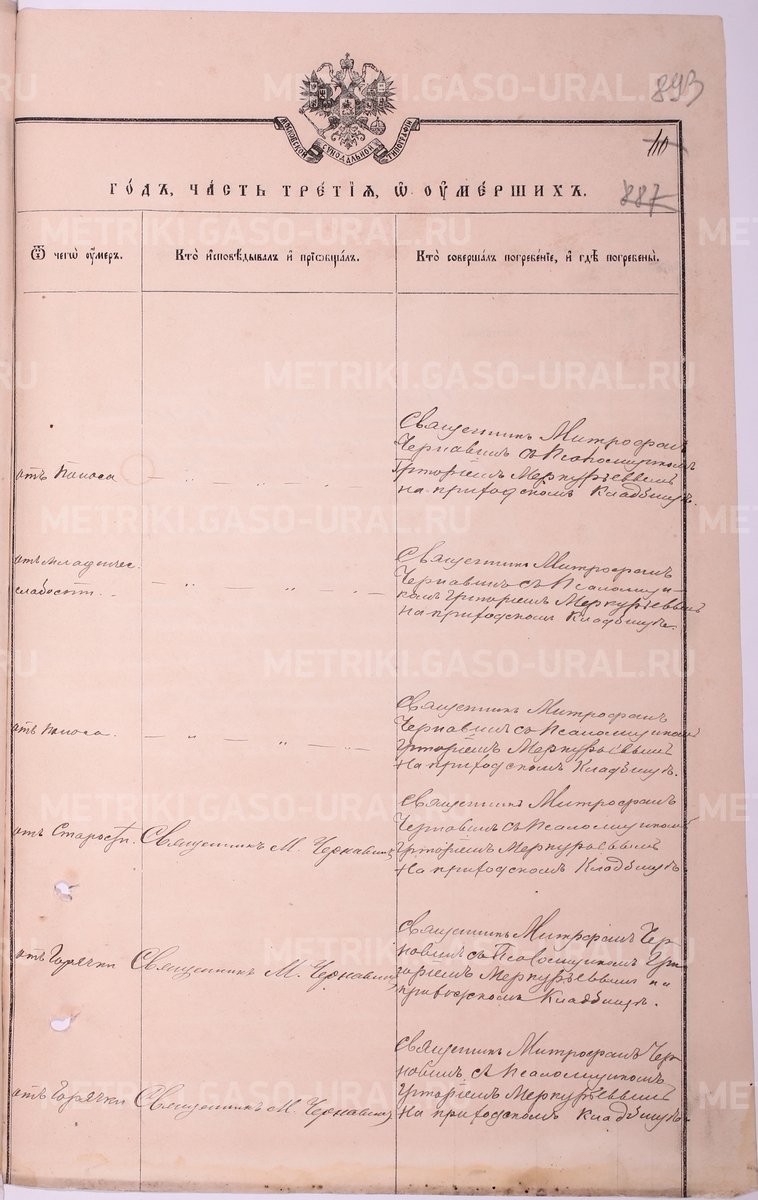 METRIKI.GASO-URAL.RU
893
МОСКОВСКОЙ СѴНОДАЛЬНОЙ ТИПОГРАФІИ
10
887
ГОДЪ, ЧАСТЬ ТРЕТІѦ, Ѿ ОУМЕРШИХЪ.
Ѿ чегѡ оумеръ.
Кто исповѣдывалъ и прїѡбщалъ.
Кто совершалъ погребенїе, и гдѣ погребены.
отъ поноса
Священникъ Митрофанъ
Чернавинъ съ Псаломщикомъ
Григоріемъ Меркурьевымъ
на приходскомъ Кладбищѣ.
отъ младенчес.
слабости.
Священникъ Митрофанъ
Чернавинъ съ Псаломщи-
комъ Григоріемъ Меркурьевымъ
на приходскомъ Кладбищѣ.
отъ поноса.
Священникъ Митрофанъ
Чернавинъ съ Псаломщикомъ
Григоріемъ Меркурьевымъ
На приходскомъ Кладбищѣ.
отъ Старости.
Священникъ М. Чернавинъ
Священникъ Митрофанъ
Чернавинъ съ Псаломщикомъ
Григоріемъ Меркурьевымъ
На приходскомъ Кладбищѣ
отъ Горячки
Священникъ М. Чернавинъ
Священникъ Митрофанъ Чер-
новинъ съ Псаломщикомъ Гри-
горіемъ Меркурьевымъ на
приходскомъ Кладбищѣ.
отъ Горячки
Священникъ М. Чернавинъ
Священникъ Митрофанъ Чер-
новинъ съ Псаломщикомъ
Григоріемъ Меркурьевымъ
На приходскомъ Кладбищѣ.